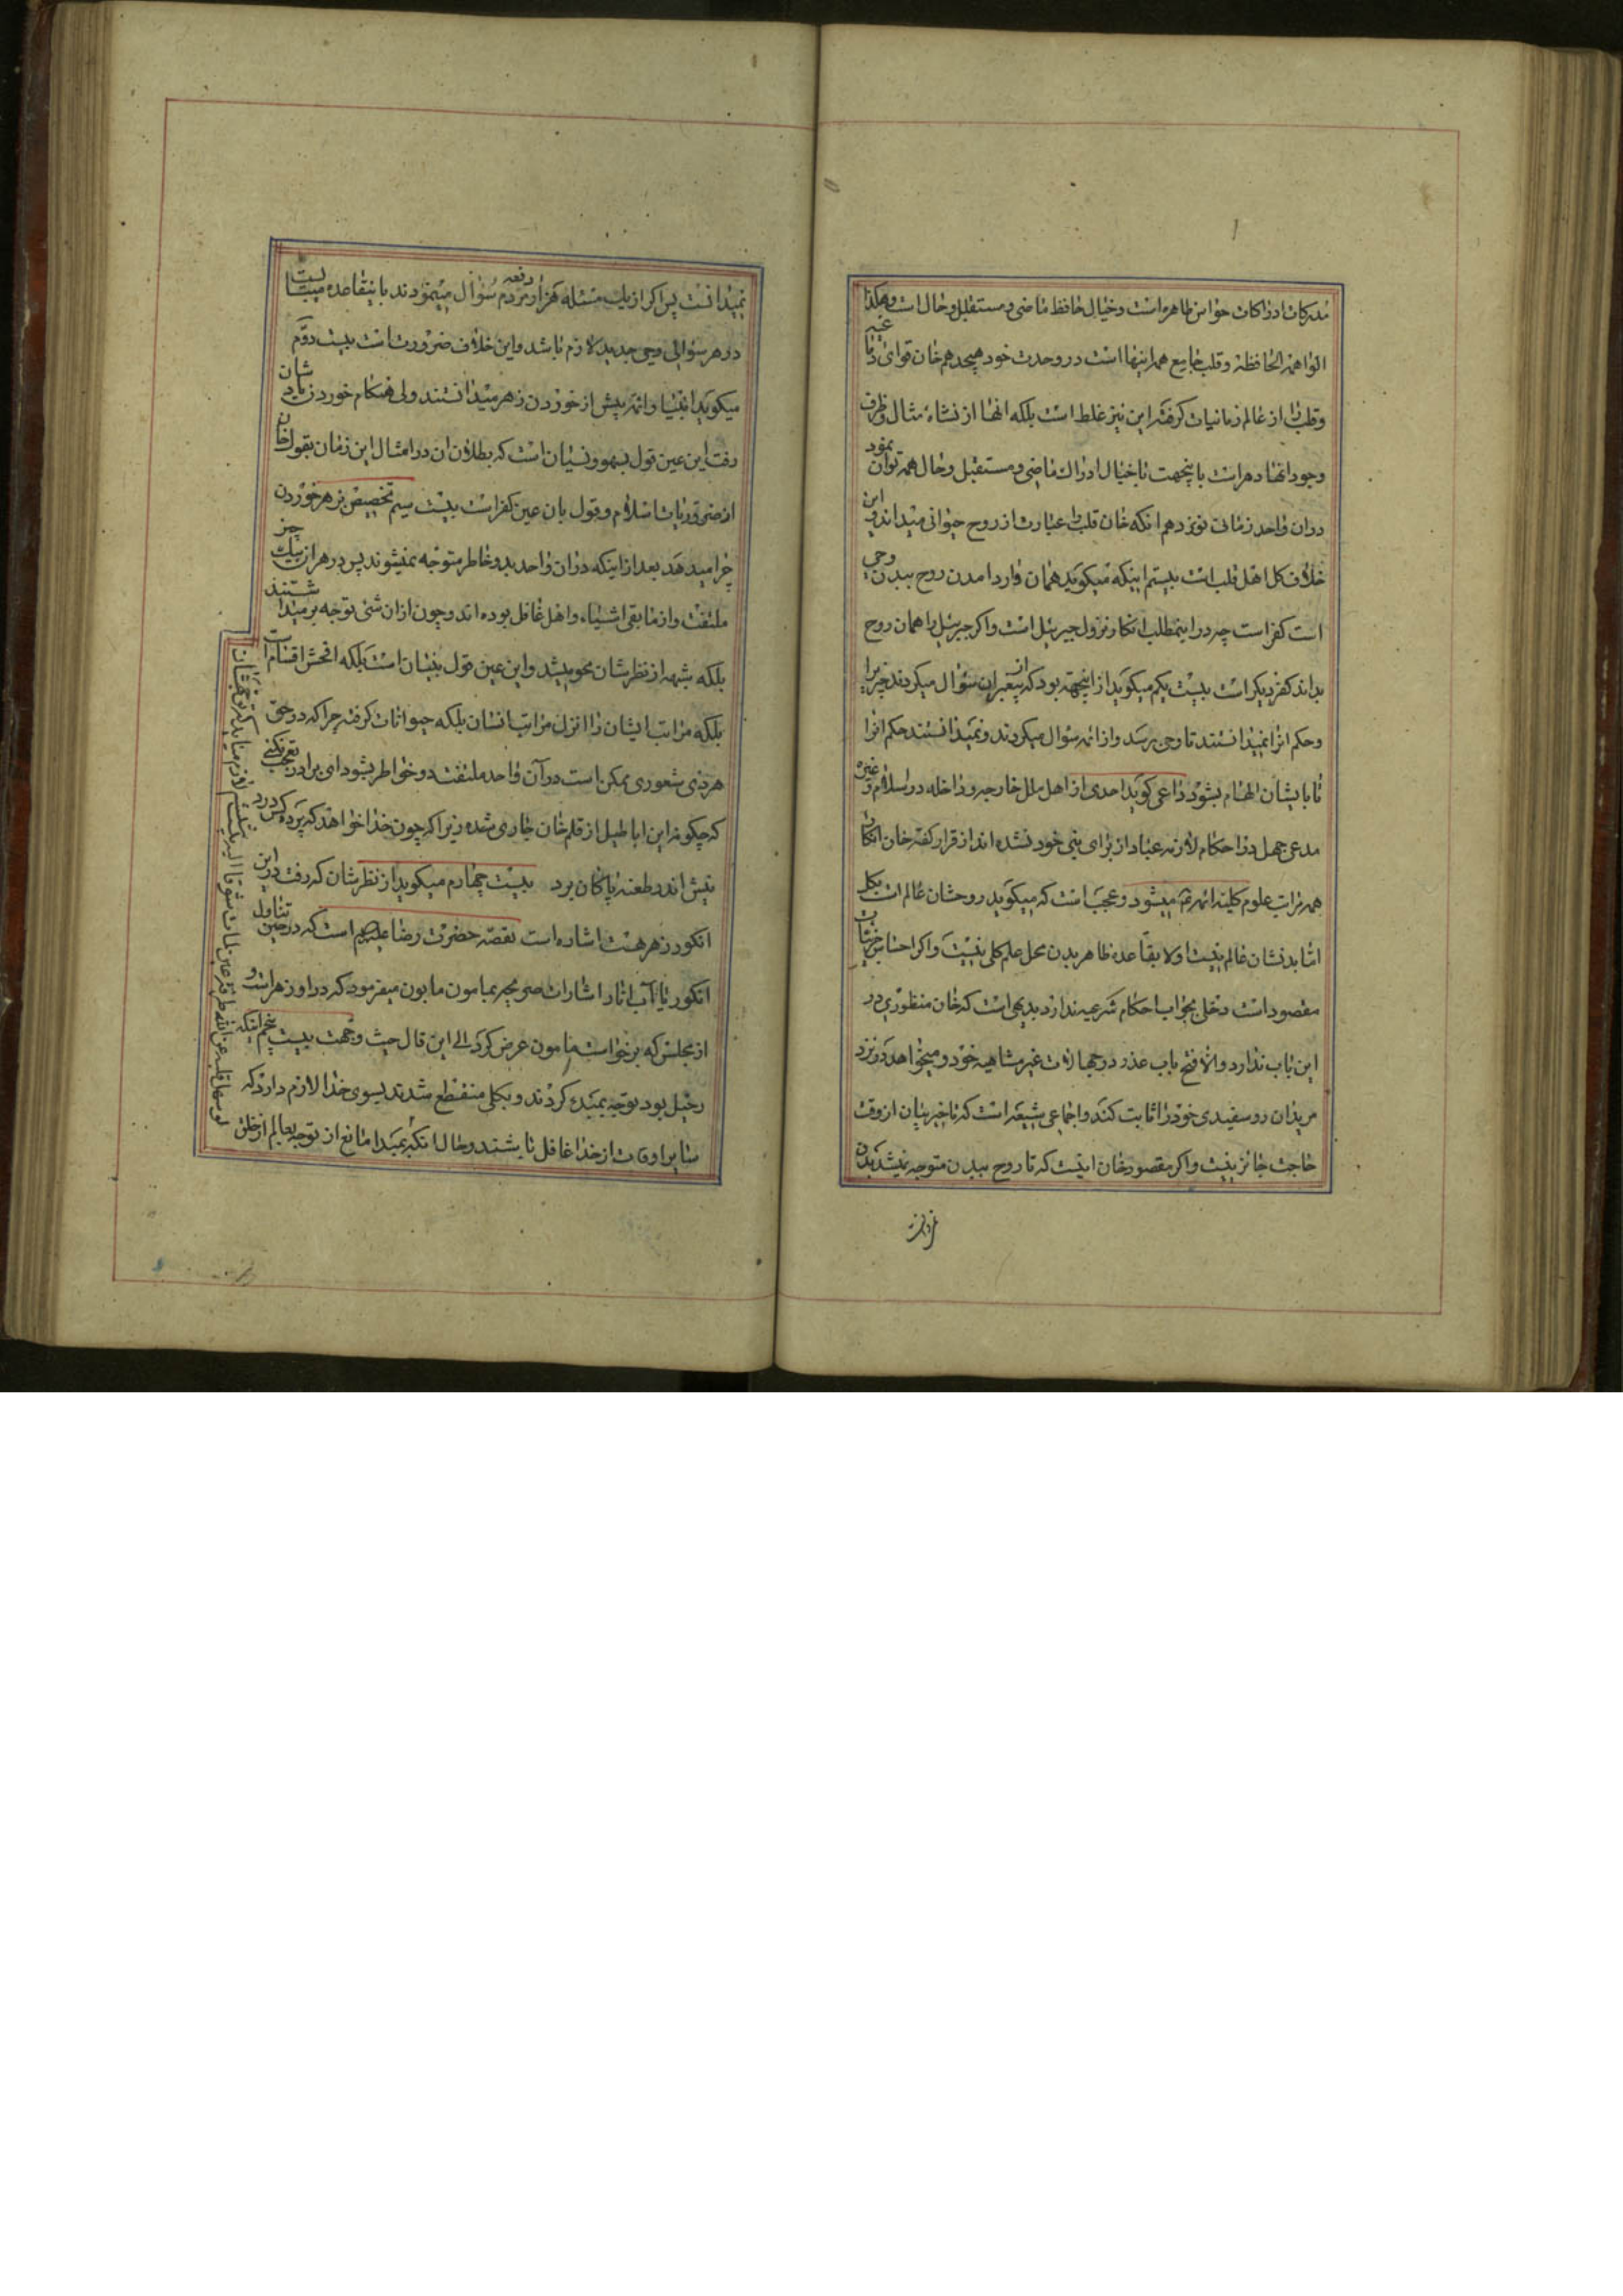 مدرکات ادراکات حواس ظاهره است و خیال حافظ ماضی و مستقبل و حال است و هکذا
الواهمه الحافظة و قلب جامع همه اینها است در وحدت خود هیجدهم خان قوای دماغیه
و قلب را از عالم زمانیات گرفته این نیز غلط است بلکه انها از نشاء مثال و ظرف
وجود انها دهر است باینجهت با خیال ادراک ماضی و مستقبل و حال همه توان نمود
در ان واحد زمانی نوزدهم انکه خان قلب را عبارت از روح حیوانی میداند و این
خلاف کل اهل قلب است بیستم اینکه میکوید همان وارد امدن روح ببدن وحی
است کفر است چه در اینمطلب انکار نزول جبرئیل است و اکر جبرئیل را همان روح
بداند کفر دیکر است بیست یکم میکوید از اینجهة بود که از پیغمبران سؤال میکردند چیز یرا
و حکم انرا نمیدانستند تا وحی برسد و از ائمه سؤال میکردند و نمیدانستند حکم انرا
تا بایشان الهام بشود داعی کوید احدی از اهل ملل خارجه و داخله در اسلام و غیره
مدعی جهل در احکام لازمه عباد از برای نبی خود نشده اند از قرار کفته خان انکار
همه مراتب علوم کلیه ائمه ثم میشود و عجب است که میکوید روحشان عالم است بکل
اما بدنشان عالم نیست اولا بقاعده ظاهر بدن محل علم کلی نیست و اکر احساس جزئیات
مقصود است دخلی بجواب احکام شرعیه ندارد بدیهی است که خان منظوری در
این باب ندارد و الا فتح باب عذر در جهالات غیر متناهیه خود و میخواهد که در نزد
مریدان رو سفیدی خود را ثابت کند و اجماعی شیعه است که تاخیر بیان از وقت
حاجت جائز نیست و اکر مقصود خان اینست که تا روح ببدن متوجه نمیشد بدن
نمیدانست پس اکر از یک مسئله هزار دفعه مردم سؤال مینمودند باینقاعده میبایست
در هر سوالی وحی جدید لازم باشد و این خلاف ضرورت است بیست دوّم
میکوید انبیا و ائمه پیش از خوردن زهر میدانستند ولی هنکام خوردن از یادشان
رفت این عین قول بسهو و نسیان است که بطلان ان در امثال این زمان بقول خان
از ضروریات اسلام و قول بان عین کفر است بیست سیم تخصیص بزهر خوردن
چرا میدهد بعد از اینکه در ان واحد بدو خاطر متوجه نمیشوند پس در هر ان بیک چیز
ملتفت و از مابقی اشیاء و اهل غافل بوده اند و چون از ان شئ توجه بر میداشتند
بلکه شبهه از نظرشان محو میشد و این عین قول بنسیان است بلکه افحش اقسام است
بلکه مراتب ایشان را انزل مراتب انسان بلکه حیوانات کرفته چرا که در حق
هر ذی شعوری ممکن است در آن واحد ملتفت دو خواطر بشود ای برادر تعجب نکنی
که چکونه این اباطیل از قلم خان جاری شده زیرا که چون خدا خواهد که پرده کس درد
نیش اندر طعنه پاکان برد بیست چهارم میکوید از نظرشان که رفت در این
انکور زهر هست اشاره است بقصه حضرت رضا علیه السلام است که در حین تناول
انکور تا آب انار اشارات صریحه بمامون مابون میفرمود که در او زهر است و
از مجلس که برخواست مامون عرض کرد الی این قال حیث وجهت بیست پنجم اینکه
رحیل بود توجه بمبدء کردند و بکلی منقطع شدند بسوی خدا لازم دارد که
سایر اوقات از خدا غافل باشند و حال انکه بمبدا مانع از توجه بعالم از خلق